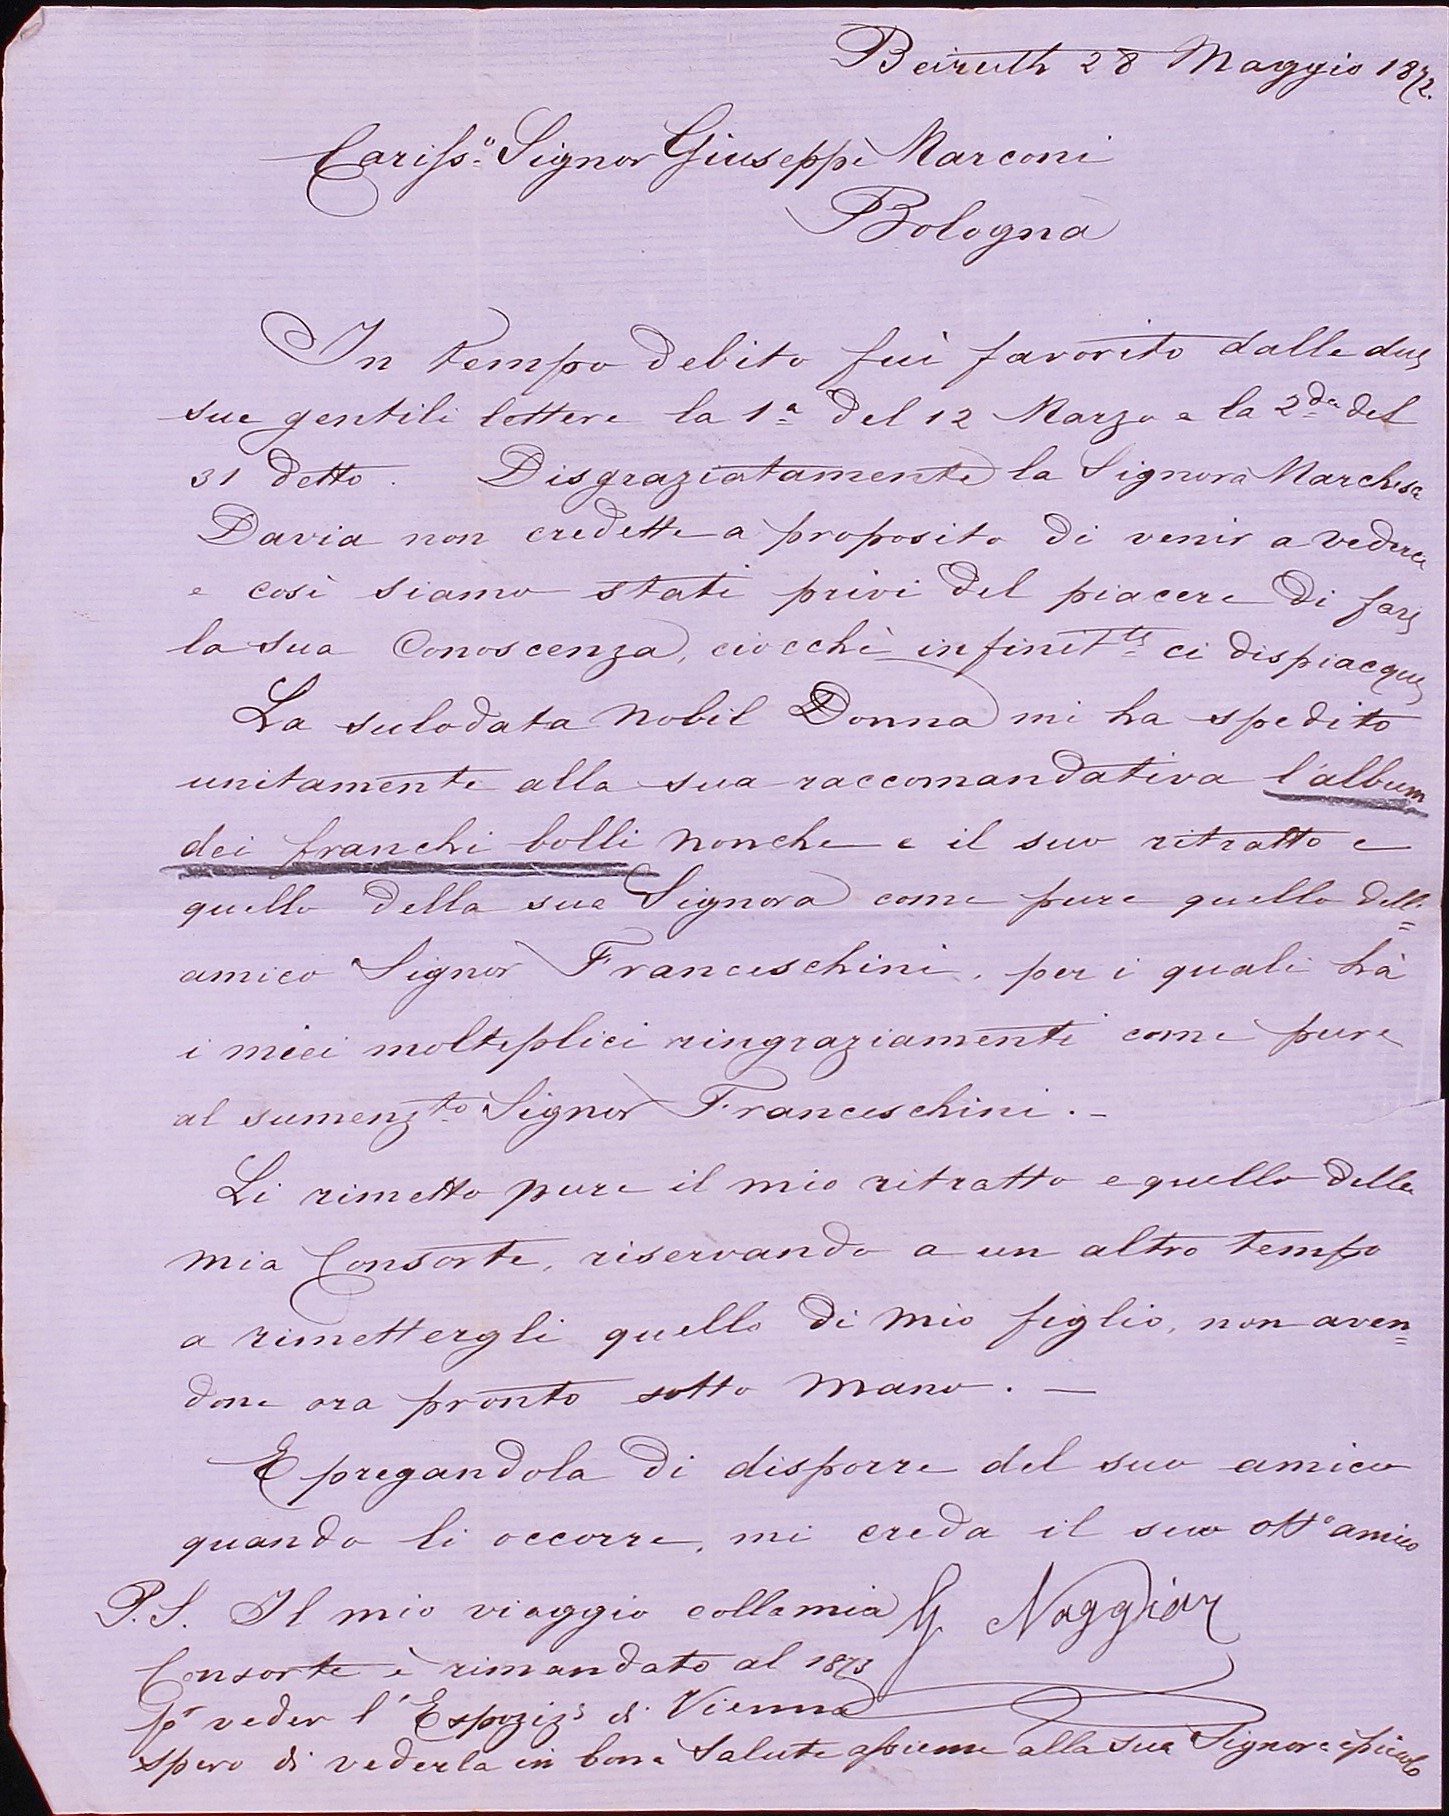 Beiruth 28 Maggio 1872.
Cariss.o Signor Giuseppe Marconi
Bologna
In tempo debito fui favorito dalle due
sue gentili lettere la 1a del 12 Marzo e la 2da del
31 detto. Disgraziatamente la Signora Marchesa
Davia non credette a proposito di venir a vederci
e così siamo stati privi del piacere di fare
la sua Conoscenza, ciocchè infinitte ci dispiacque
La sulodata Nobil Donna mi ha spedito
unitamente alla sua raccomandativa l'album
dei franchi bolli nonche e il suo ritratto e
quello della sua Signora come pure quello dell=
amico Signor Franceschini, per i quali hà
i miei molteplici ringraziamenti come pure
al sumenzto Signor Franceschini. –
Li rimetto pure il mio ritratto e quello della
mia Consorte, riservando a un altro tempo
a rimettergli quello di mio figlio, non aven=
done ora pronto sotto mano. —
E pregandola di disporre del suo amico
quando li occorre, mi creda il suo ott.o amico
G Naggiar
P.S. Il mio viaggio colla mia
Consorte è rimandato al 1873
pr veder l'Espoziz. di Vienna
spero di vederla in bona Salute assieme alla sua Signora e picolo